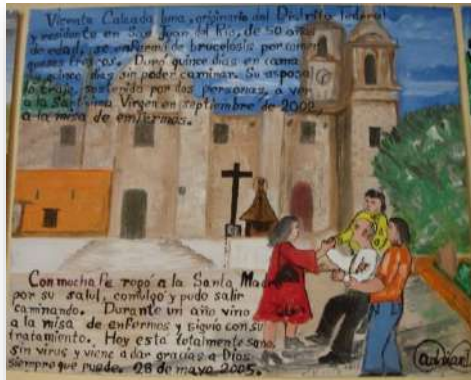 Vicente Calzada Luna, originario del Distrito Federal
y residente en San Juan del Río, de 50 años
de edad, se enfermó de brucelosis por comer
quesos frescos. Duró quince días en cama
y quince días sin poder caminar. Su esposa
lo trajo, sostenido por dos personas, a ver
a la Santísima Virgen en septiembre de 2002,
a la misa de enfermos.
Con mucha fe rogó a la Santa Madre
por su salud, comulgó y pudo salir
caminando. Durante un año vino
a la misa de enfermos y siguio con su
tratamiento. Hoy esta totalmente sano,
sin virus y viene a dar gracias a Dios
siempre que puede. 28 de mayo 2005.